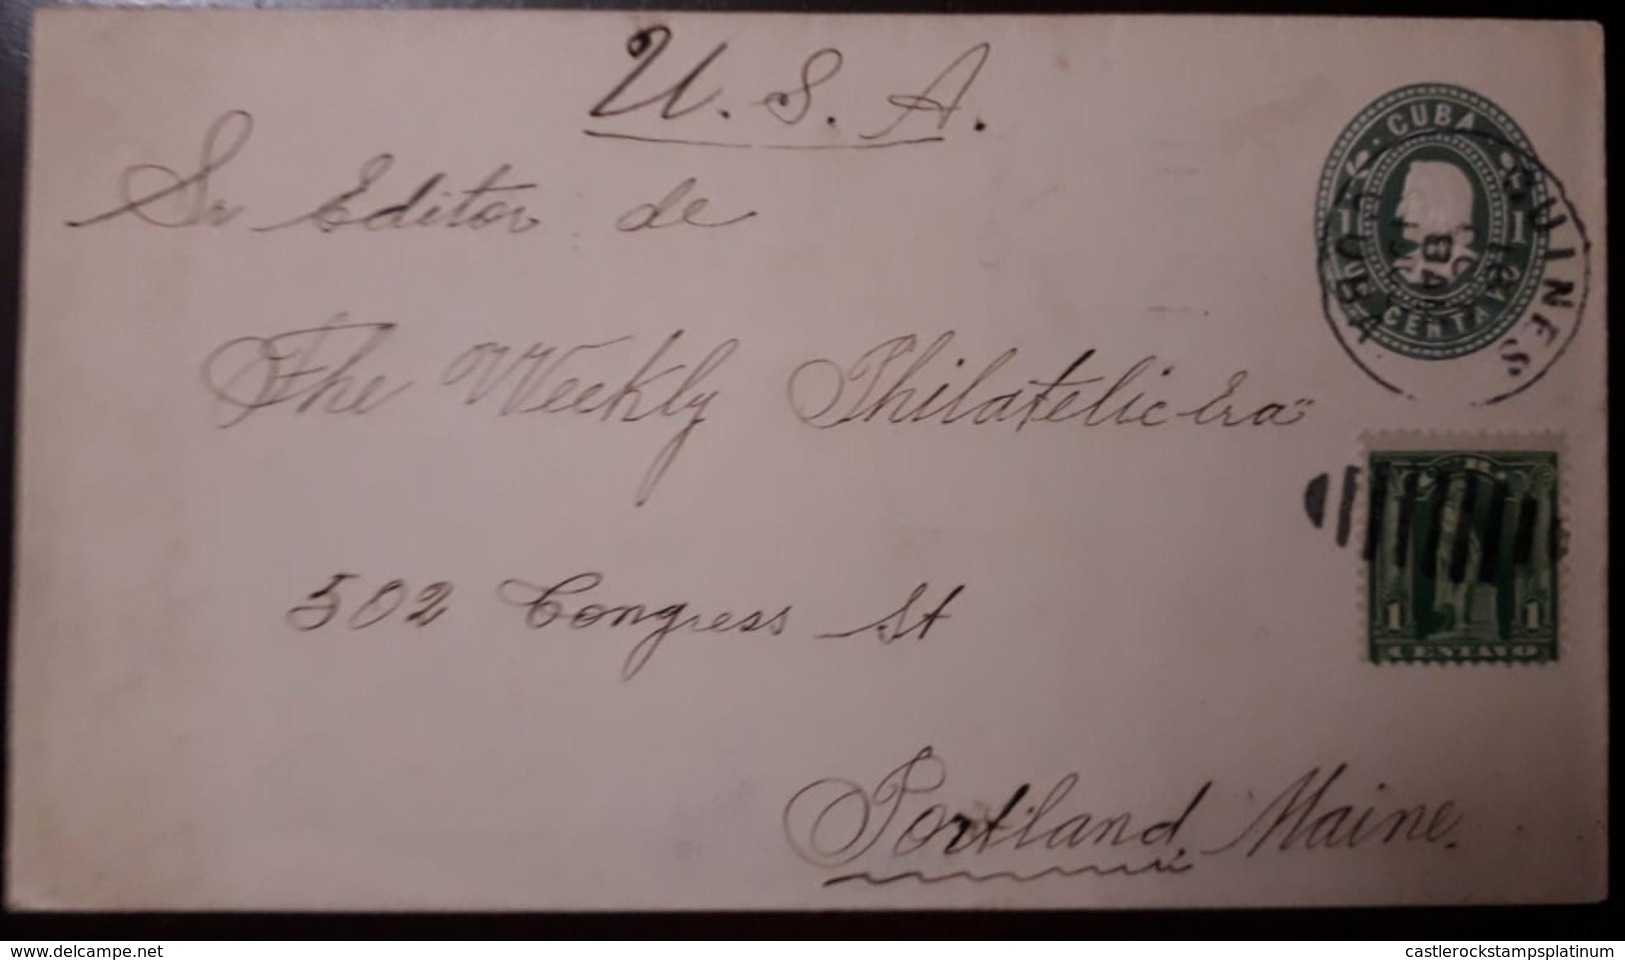 U.S.A.
Sr Editor de
The Weekly Philatelic Era"
502 Congress St
Portland, Maine.
CUBA
1 1
CENTAVO
GUINES
1 1
CENTAVO
delcampe.net
castlerockstampsplatinum